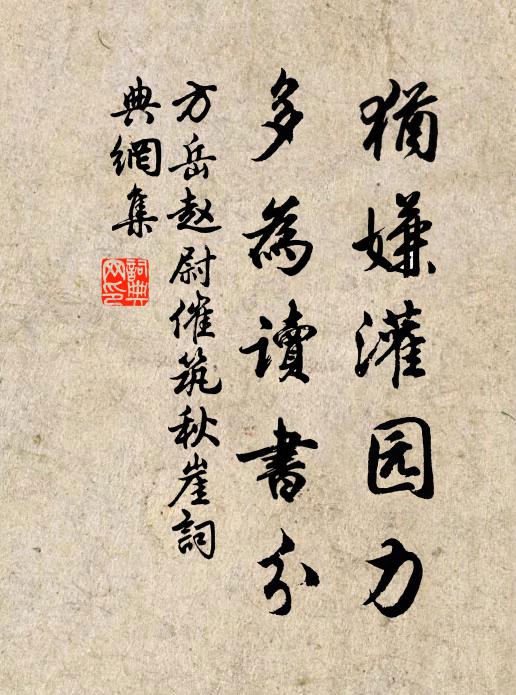 犹嫌灌园力
多為讀書分
方岳赵尉催筑秋崖詞
典網集
詞典网印